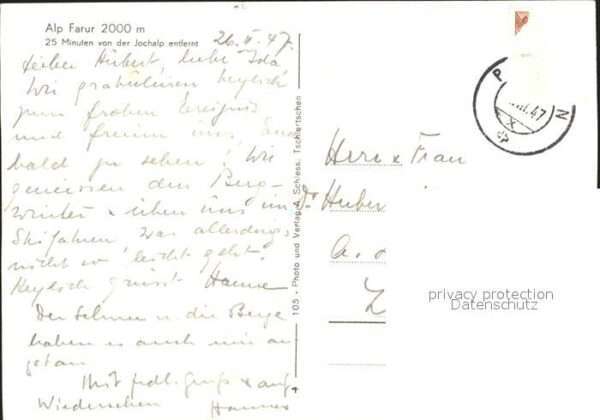 Alp Farur 2000 m
25 Minuten von der Jochalp entfernt
26. II. 47.
Lieber Hubert, liebe Ida
Wir gratulieren herzlich
zum frohen Ereignis
und freuen uns, Euch
bald zu sehen! Wir
geniessen den Berg-
winter & üben uns im
Skifahren, was allerdings
nicht so leicht geht.
Herzlich grüsst Hanne
Der Schnee u. die Berge
haben es auch mir an-
getan.
Mit frdl. Gruss & auf
Wiedersehen Hannes
105 - Photo und Verlag A. Schiess, Tschiertschen
P N
.III.47
X
Herr & Frau
Dr. Huber
A. o
Z
privacy protection
Datenschutz